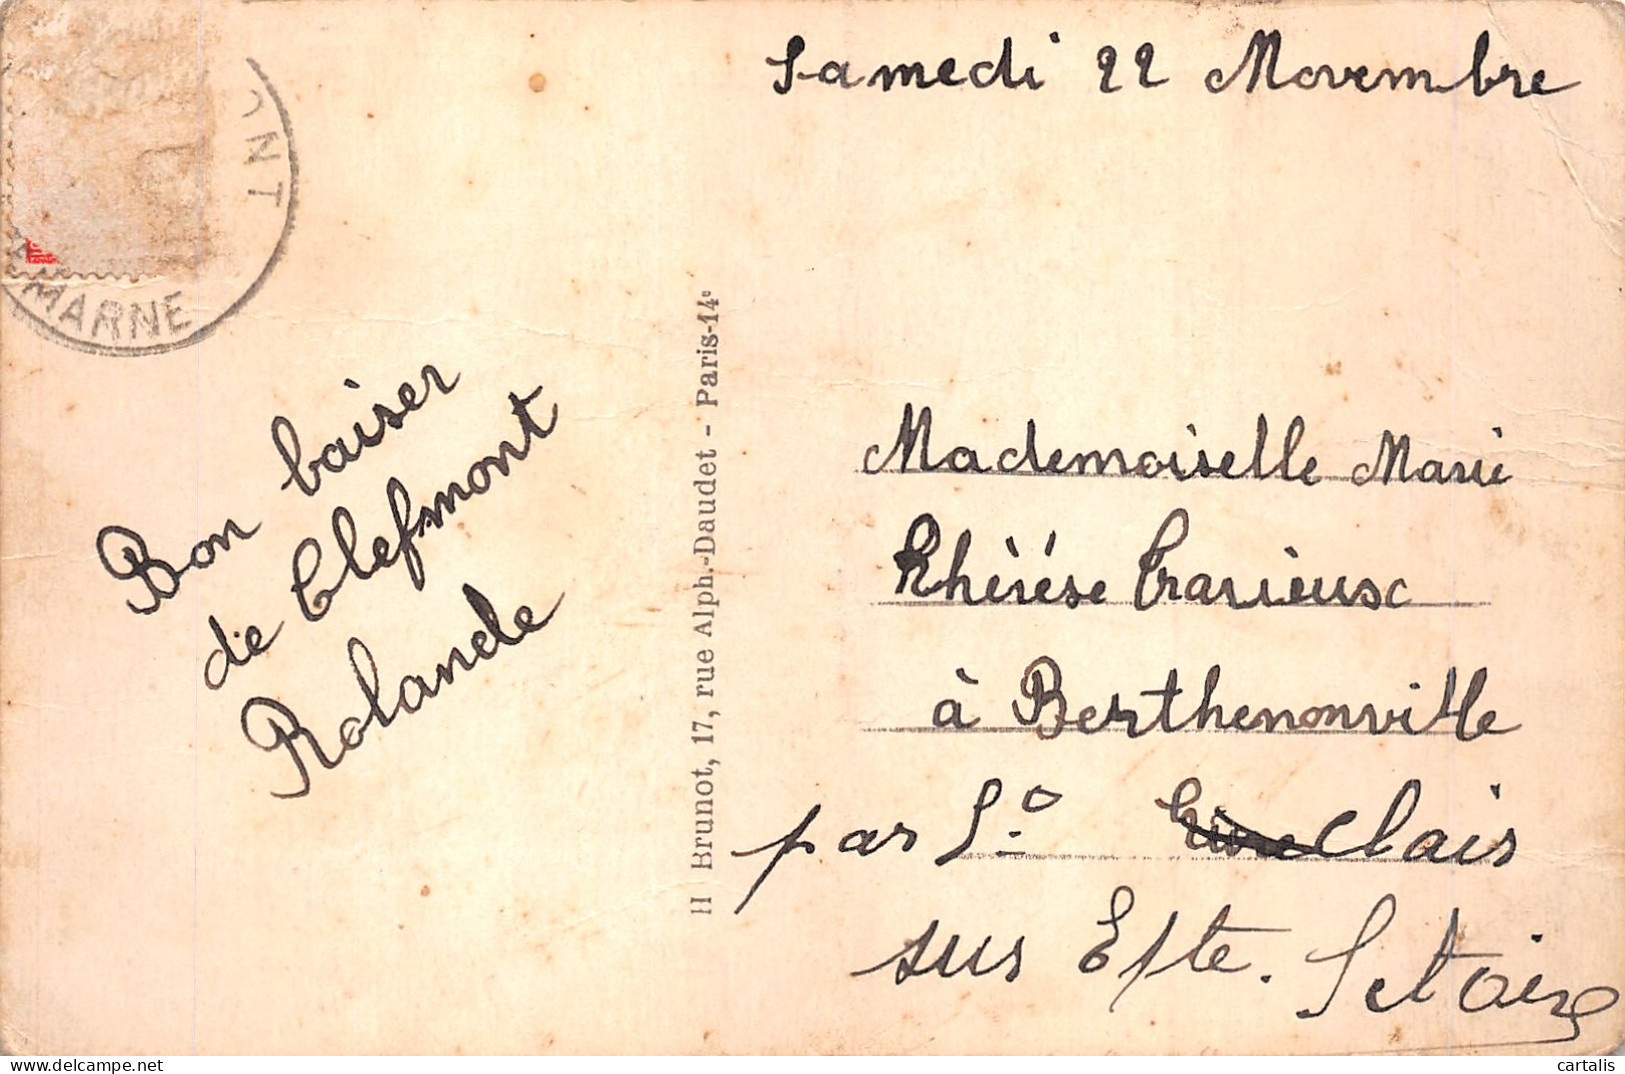 Samedi 22 Novembre
ONT
MARNE
Bon baiser
de Clefmont
Rolande
H Brunot, 17, rue Alph.-Daudet - Paris-14e
Mademoiselle Marie
Thérése Trarieux
à Berthenonville
par St Clair
sur Epte.
cartalis
www.delcampe.net